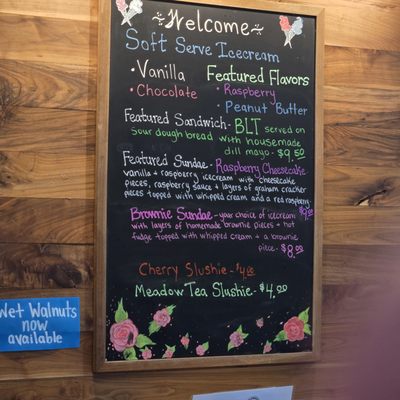 Welcome
Soft Serve Icecream
• Vanilla
• Chocolate
Featured Flavors
• Raspberry
• Peanut Butter
Featured Sandwich - BLT served on
sour dough bread with housemade
dill mayo - $9.50
Featured Sundae - Raspberry Cheesecake
vanilla + raspberry icecream with cheesecake
pieces, raspberry sauce + layers of graham cracker
pieces topped with whipped cream and a red raspberry
$9.00
Brownie Sundae - your choice of icecream
with layers of homemade brownie pieces + hot
fudge topped with whipped cream + a brownie
piece - $8.00
Cherry Slushie - $4.00
Meadow Tea Slushie - $4.00
Wet Walnuts
now
available